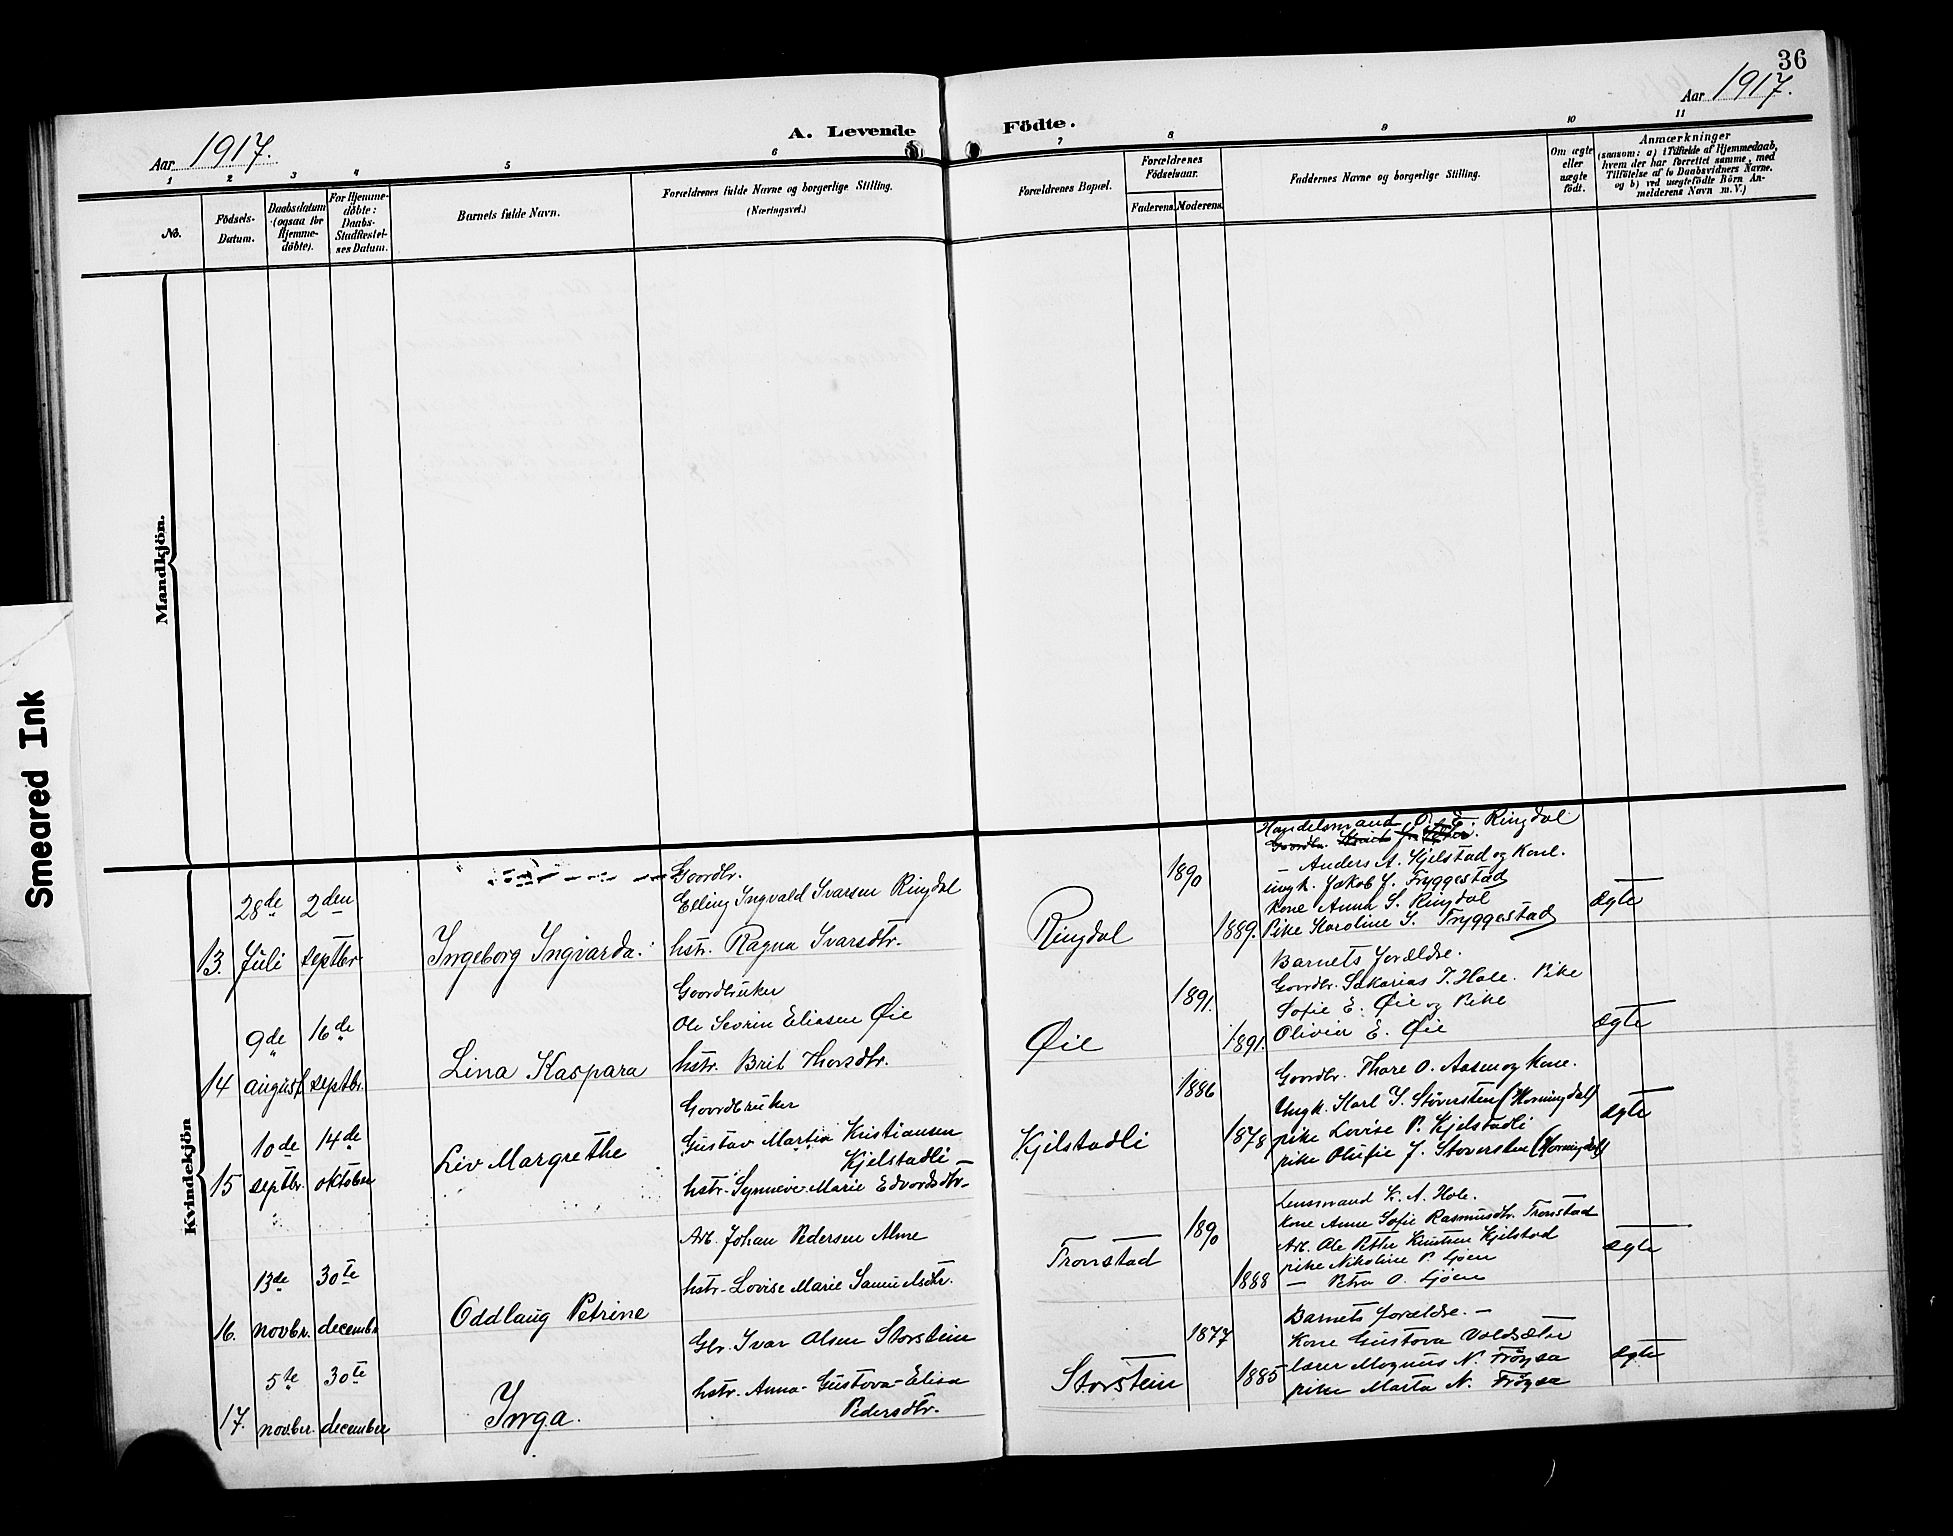 36
Aar 1917.
Aar 1917.
A. Levende Födte.
1 2 3 4 5 6 7 8 9 10 11
No.
Födsels-
Datum.
Daabsdatum
(ogsaa for
Hjemme-
döbte).
For Hjemme-
döbte:
Daabs-
Stadfæstel-
ses Datum.
Barnets fulde Navn.
Forældrenes fulde Navne og borgerlige Stilling.
(Næringsvei.)
Forældrenes Bopæl.
Forældrenes
Födselsaar.
Faderens.
Moderens.
Faddernes Navne og borgerlige Stilling.
Om ægte
eller
uægte
födt.
Anmærkninger
(saasom: a) i Tilfælde af Hjemmedaab,
hvem der har forrettet samme, med
Tilföielse af to Daabsvidners Navne,
og b) ved uægtefödte Börn An-
melderens Navn m. V.)
Mandkjön.
Smeared Ink
Kvindekjön
13.
28de
Juli
2den
septbr.
Ingeborg Ingvarda.
Goordbr.
Elling Ingvald Ivarsen Ringdal
hstr. Ragna Ivarsdtr.
Ringdal
1890
1889.
Handelsmand O. E. Ringdal
— Anders A. Hjelstad og Kone.
ungk. Jakob J. Tryggestad
Kone Anna S. Ringdal
Pike Karoline S. Tryggestad
ægte
14
9de
august
16de
septbr.
Lina Kaspara
Goordbruker
Ole Sevrin Eliasen Øie
hstr. Brit Thorsdtr.
Øie
1891.
1891.
Barnets forældre.
Goordbr. Sakarias T. Hole. Pike
Sofie E. Øie og Pike
Olivia E. Øie
ægte
15
10de
septbr.
14de
oktober
Liv Margrethe
Goordbruker
Gustav Martin Kristiansen
Kjelstadli —
hstr. Synneve Marie Edvardsdtr.
Kjelstadli
1886
1878
Goordbr. Thore O. Aasen og Kone.
Ungk. Karl J. Støversten (Horningdal)
pike Lovise P. Kjelstadli
pike Olufie J. Støversten (Horningdal)
ægte
16.
13de
novbr.
30te
decembr.
Oddlaug Petrine
Arb. Johan Pedersen Alme
hstr. Lovise Marie Samuelsdtr.
Tronstad
1890
1888
Lensmand K. A. Hole.
Kone Anne Sofie Rasmusdtr. Tronstad
Arb. Ole Petter Knutsen Kjelstad
pike Nikoline P. Sjøen
— Petra O. Sjøen
ægte
17.
5te
novber.
30te
december
Inga.
Gbr. Ivar Olsen Storstein
hstr. Anna-Gustava-Elisa
Pedersdtr.
Storstein
1877
1885
Barnets forældre. —
Kone Gustava Valdsæter
lærer Magnus N. Frøysa
pike Marta N. Frøysa
ægte